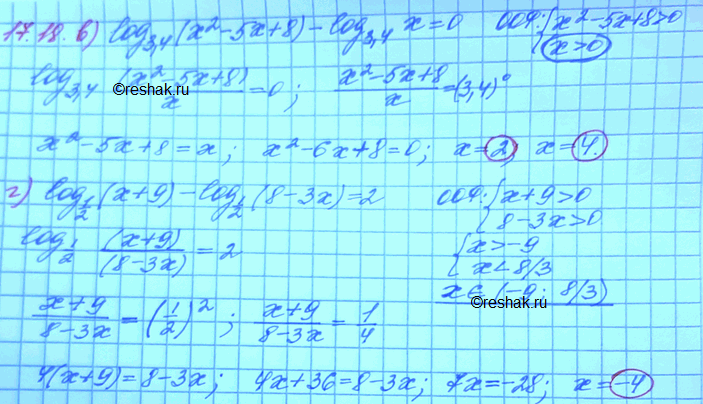 17.18. в) log₃,₄(x²-5x+8)-log₃,₄ x=0 ООФ: { x²-5x+8>0
x>0
log₃,₄ (x²-5x+8)/x =0; (x²-5x+8)/x =(3,4)⁰
©reshak.ru
x²-5x+8=x; x²-6x+8=0; x=2, x=4.
г) log_{1/2}(x+9)-log_{1/2}(8-3x)=2 ООФ: { x+9>0
8-3x>0
log_{1/2} (x+9)/(8-3x) = 2 { x>-9
x<8/3
x∈(-9; 8/3)
©reshak.ru
(x+9)/(8-3x) = (1/2)²; (x+9)/(8-3x) = 1/4
4(x+9)=8-3x; 4x+36=8-3x; 7x=-28; x=-4